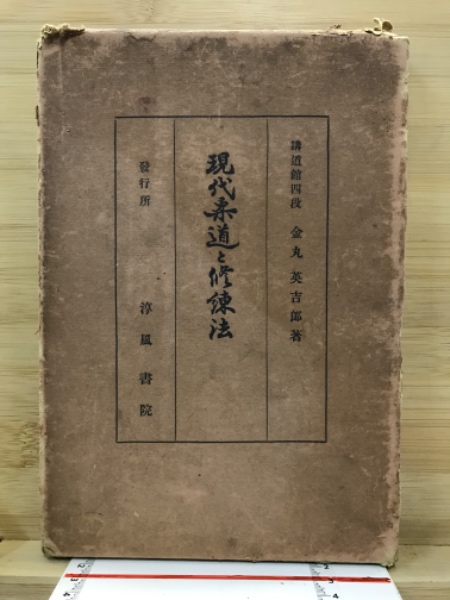 講道館四段 金丸英吉郎著
現代柔道と修錬法
發行所 淳風書院